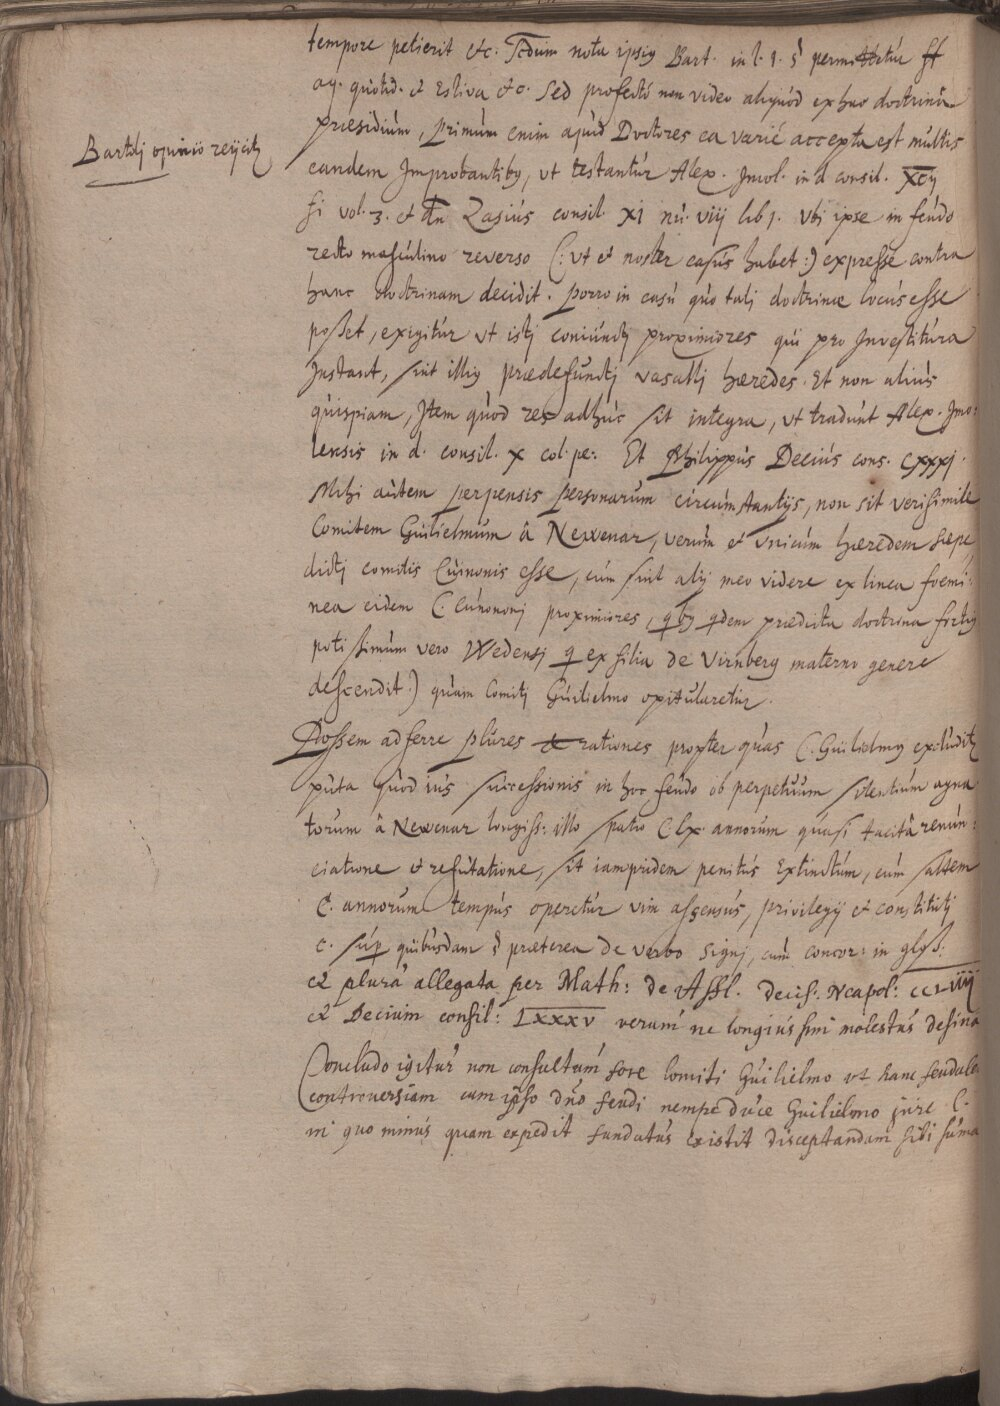 tempore petierit etc. scdum nota ipsiq Bart. in l. 1. § permittitur ff
aq. quotid. et Estiva etc. Sed profectò non video aliquòd ex hac doctrina
Bartolj opinio reijcitz
præsidium, primùm enim apud Doctores ea variè accepta est multis
eandem Improbantibq, ut testantùr Alex. Imol. in d consil. xcij
si vol. 3. et dn Zasiùs consil. XI nù. viij lib 1. Ubi ipse in feùdo
recto masculino reverso (: ut et noster casùs habet :) expresse contra
hanc doctrinam decidit. porro in casù quo tali doctrinæ locùs esse
posset, exigitùr ut istj coniùnctj proximiores qùi pro Investitùra
Instant, sint illiq prædefùnctj vasallj hæredes. Et non aliùs
quispiam, Item quòd res adhùc sit integra, ut tradùnt Alex. Imo:
lensis in d. consil. x col. pe: Et Philippùs Deciùs cons. cxxxj.
Mihi aùtem perpensis personarum circùmstantijs, non sit verisimile
Comitem Gùilielmum à Newenar, verùm et vnicùm hæredem sæpe
dictj comitis Cùnonis esse, cùm sint alij meo videre ex linea foemi:
nea eidem C. Cùnononj proximiores, qbq qdem prædicta doctrina fortiq
potissimùm vero Wedensj q ex filia de Virnberg materno genere
descendit.) qùam Comitj Gùilielmo opitùlaretùr.
Possem adferre plùres et rationes propter qùas C. Gùilielmq exclùditz
pùta qùòd iùs sùccessionis in hoc feùdo ob perpetùum silentiùm agna
torum à Newenar longiss: illo spatio C lx. annorùm qùasi tacitâ renùn:
ciatione et refùtatione, sit iampridem penitùs Extinctùm, cùm saltem
C. annorum tempùs operetùr vim assensùs, privilegij et constitùtj
c. sùp qùibùsdam § præterea de verbo signj, cùm concor: in gloss.
et plura allegata per Math: de Affl. decis: Neapol: ccLviiij
et Decium consil: LXXXV verum ne longiùs sim molestùs desina
Concludo igitur non consultum fore Comiti Gùilielmo ut hanc feudale
controversiam cum ipso dno feudi nempe duce Guilielmo jure C.
in quo minùs quam expedit fundatùs existit disceptandam sibi sùma